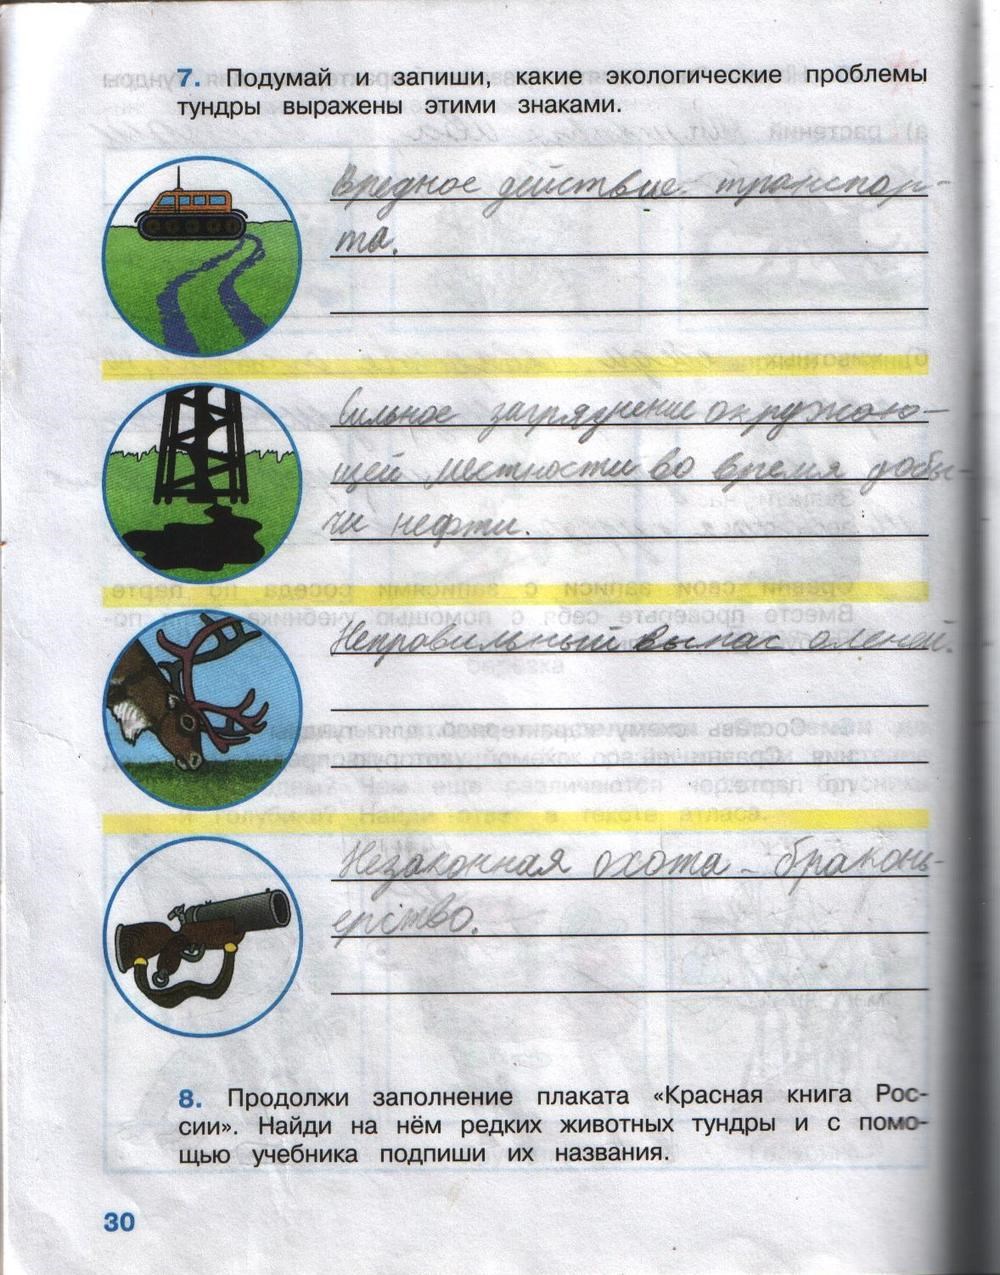 7. Подумай и запиши, какие экологические проблемы
тундры выражены этими знаками.
Вредное действие транспор-
та.
Сильное загрязнение окружаю-
щей местности во время добы-
чи нефти.
Неправильный выпас оленей.
Незаконная охота - браконь-
ерство.
8. Продолжи заполнение плаката «Красная книга Рос-
сии». Найди на нём редких животных тундры и с помо-
щью учебника подпиши их названия.
30